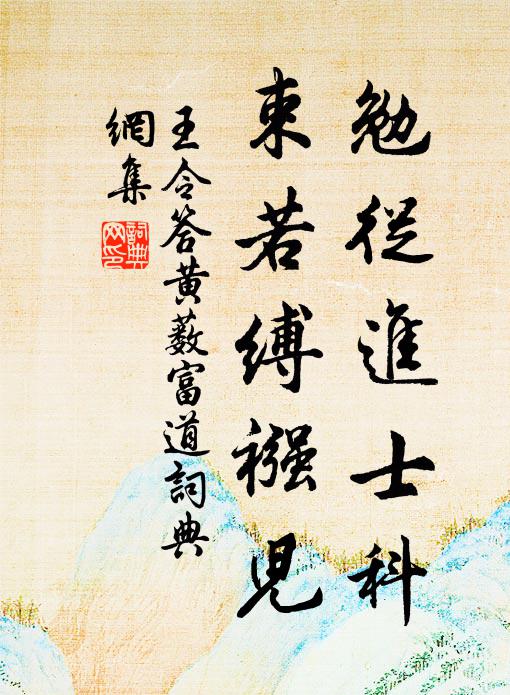 勉從進士科
束若縛襁兒
王令答黄藪富道詞典
網集
詞典
网印